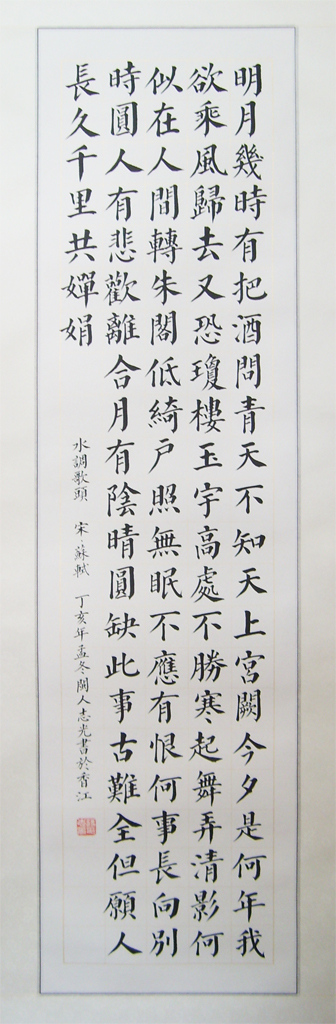 明月幾時有把酒問青天不知天上宮闕今夕是何年我
欲乘風歸去又恐瓊樓玉宇高處不勝寒起舞弄清影何
似在人間轉朱閣低綺戶照無眠不應有恨何事長向別
時圓人有悲歡離合月有陰晴圓缺此事古難全但願人
長久千里共嬋娟
水調歌頭 宋 蘇軾 丁亥年孟冬閩人志光書於香江